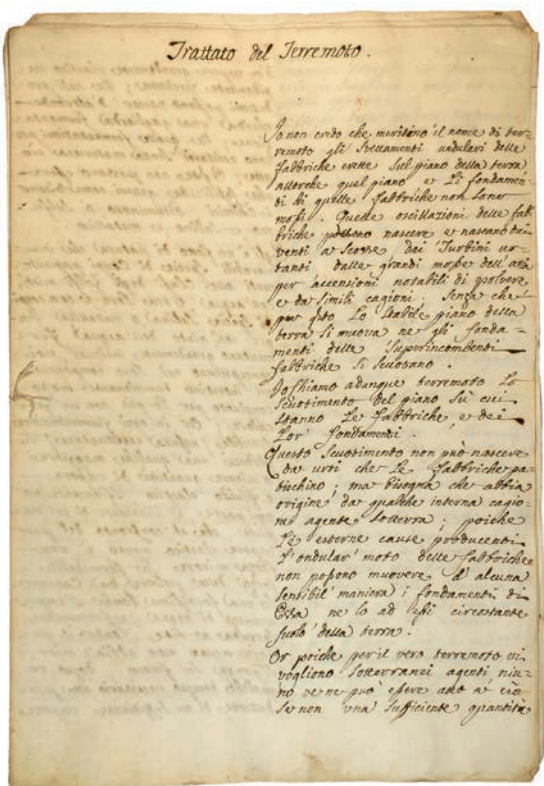 Trattato del Terremoto.
Io non credo che meritino il nome di ter=
remoto gli Scottamenti undulari delle
fabbriche erette sul piano della terra
allorche quel piano e li fondamen=
ti di quelle fabbriche non sono
mossi. Quelle oscillazioni delle fab
briche possono nascere e nascano dai
venti a scosse dai Turbini ur=
tanti, dalle grandi mosse dell'aria
per accensioni notabili di polvere
e da simili cagioni; senza che
per ciò lo stabile piano della
terra si muova ne gli fonda=
menti delle superincombenti
fabbriche si scuotano.
Io chiamo adunque terremoto lo
scuotimento del piano su cui
stanno le fabbriche, e dei
lor fondamenti.
Questo scuotimento non può nascere
da urti che le fabbriche pa=
tischino; ma bisogna che abbia
origine da qualche interna cagio=
ne agente sotterra; poiche
le esterne cause producenti
l'ondular' moto delle fabbriche
non possono muovere d'alcuna
sentibil' maniera i fondamenti di
Essa ne lo ad essi circostante
suolo della terra.
Or poiche per il vero terremoto vi
vogliono sotterranei agenti niu=
no ve ne può essere atto a ciò
se non una sufficiente quantità